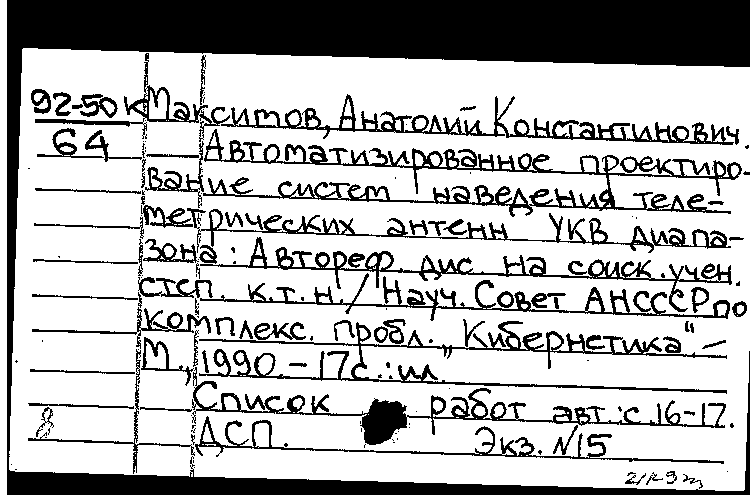 92-50к Максимов, Анатолий Константинович.
64 Автоматизированное проектиро-
вание систем наведения теле-
метрических антенн УКВ диапа-
зона: Автореф. дис. на соиск. учен.
степ. к.т.н. / Науч. Совет АНСССР по
комплекс. пробл. „Кибернетика“. –
М., 1990. – 17с.: ил.
Список работ авт.: с. 16-17.
8 ДСП. Экз. N15